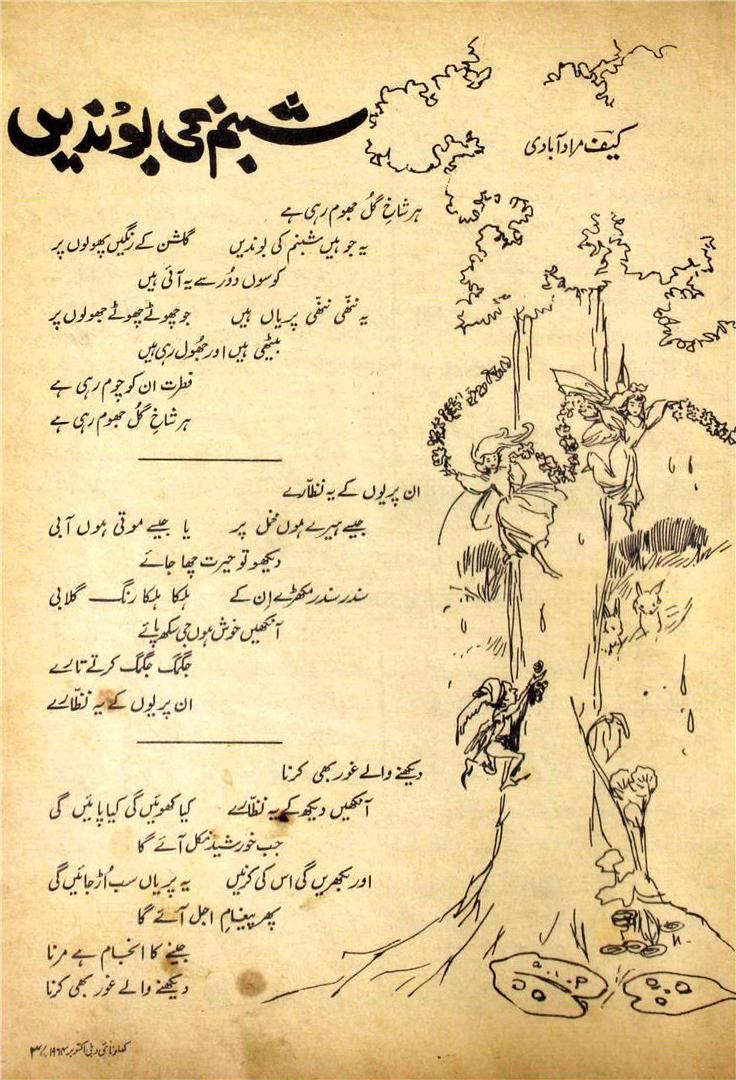 شبنم کی بوندیں
کیف مرادآبادی
ہر شاخِ گُل جھوم رہی ہے
یہ جو ہیں شبنم کی بوندیں گلشن کے رنگیں پھولوں پر
کوسوں دُور سے یہ آئی ہیں
یہ ننّھی ننّھی پریاں ہیں جو چھوٹے چھوٹے جھولوں پر
بیٹھی ہیں اور جھُول رہی ہیں
فطرت ان کو چوم رہی ہے
ہر شاخِ گُل جھوم رہی ہے
ان پریوں کے یہ نظّارے
جیسے ہیرے ہوں مخمل پر یا جیسے موتی ہوں آبی
دیکھو تو حیرت چھا جائے
سندر سندر مکھڑے اِن کے ہلکا ہلکا رنگ گلابی
آنکھیں خوش ہوں جی سکھ پائے
جگمگ جگمگ کرتے تارے
ان پریوں کے یہ نظّارے
دیکھنے والے غور بھی کرنا
آنکھیں دیکھ کے یہ نظّارے کیا کھوئیں گی کیا پائیں گی
جب خورشید نکل آئے گا
اور بکھریں گی اس کی کرنیں یہ پریاں سب اُڑ جائیں گی
پھر پیغامِ اجل آئے گا
جینے کا انجام ہے مرنا
دیکھنے والے غور بھی کرنا
کھلونا نئی دہلی اکتوبر ۱۹۶۴ء/۳